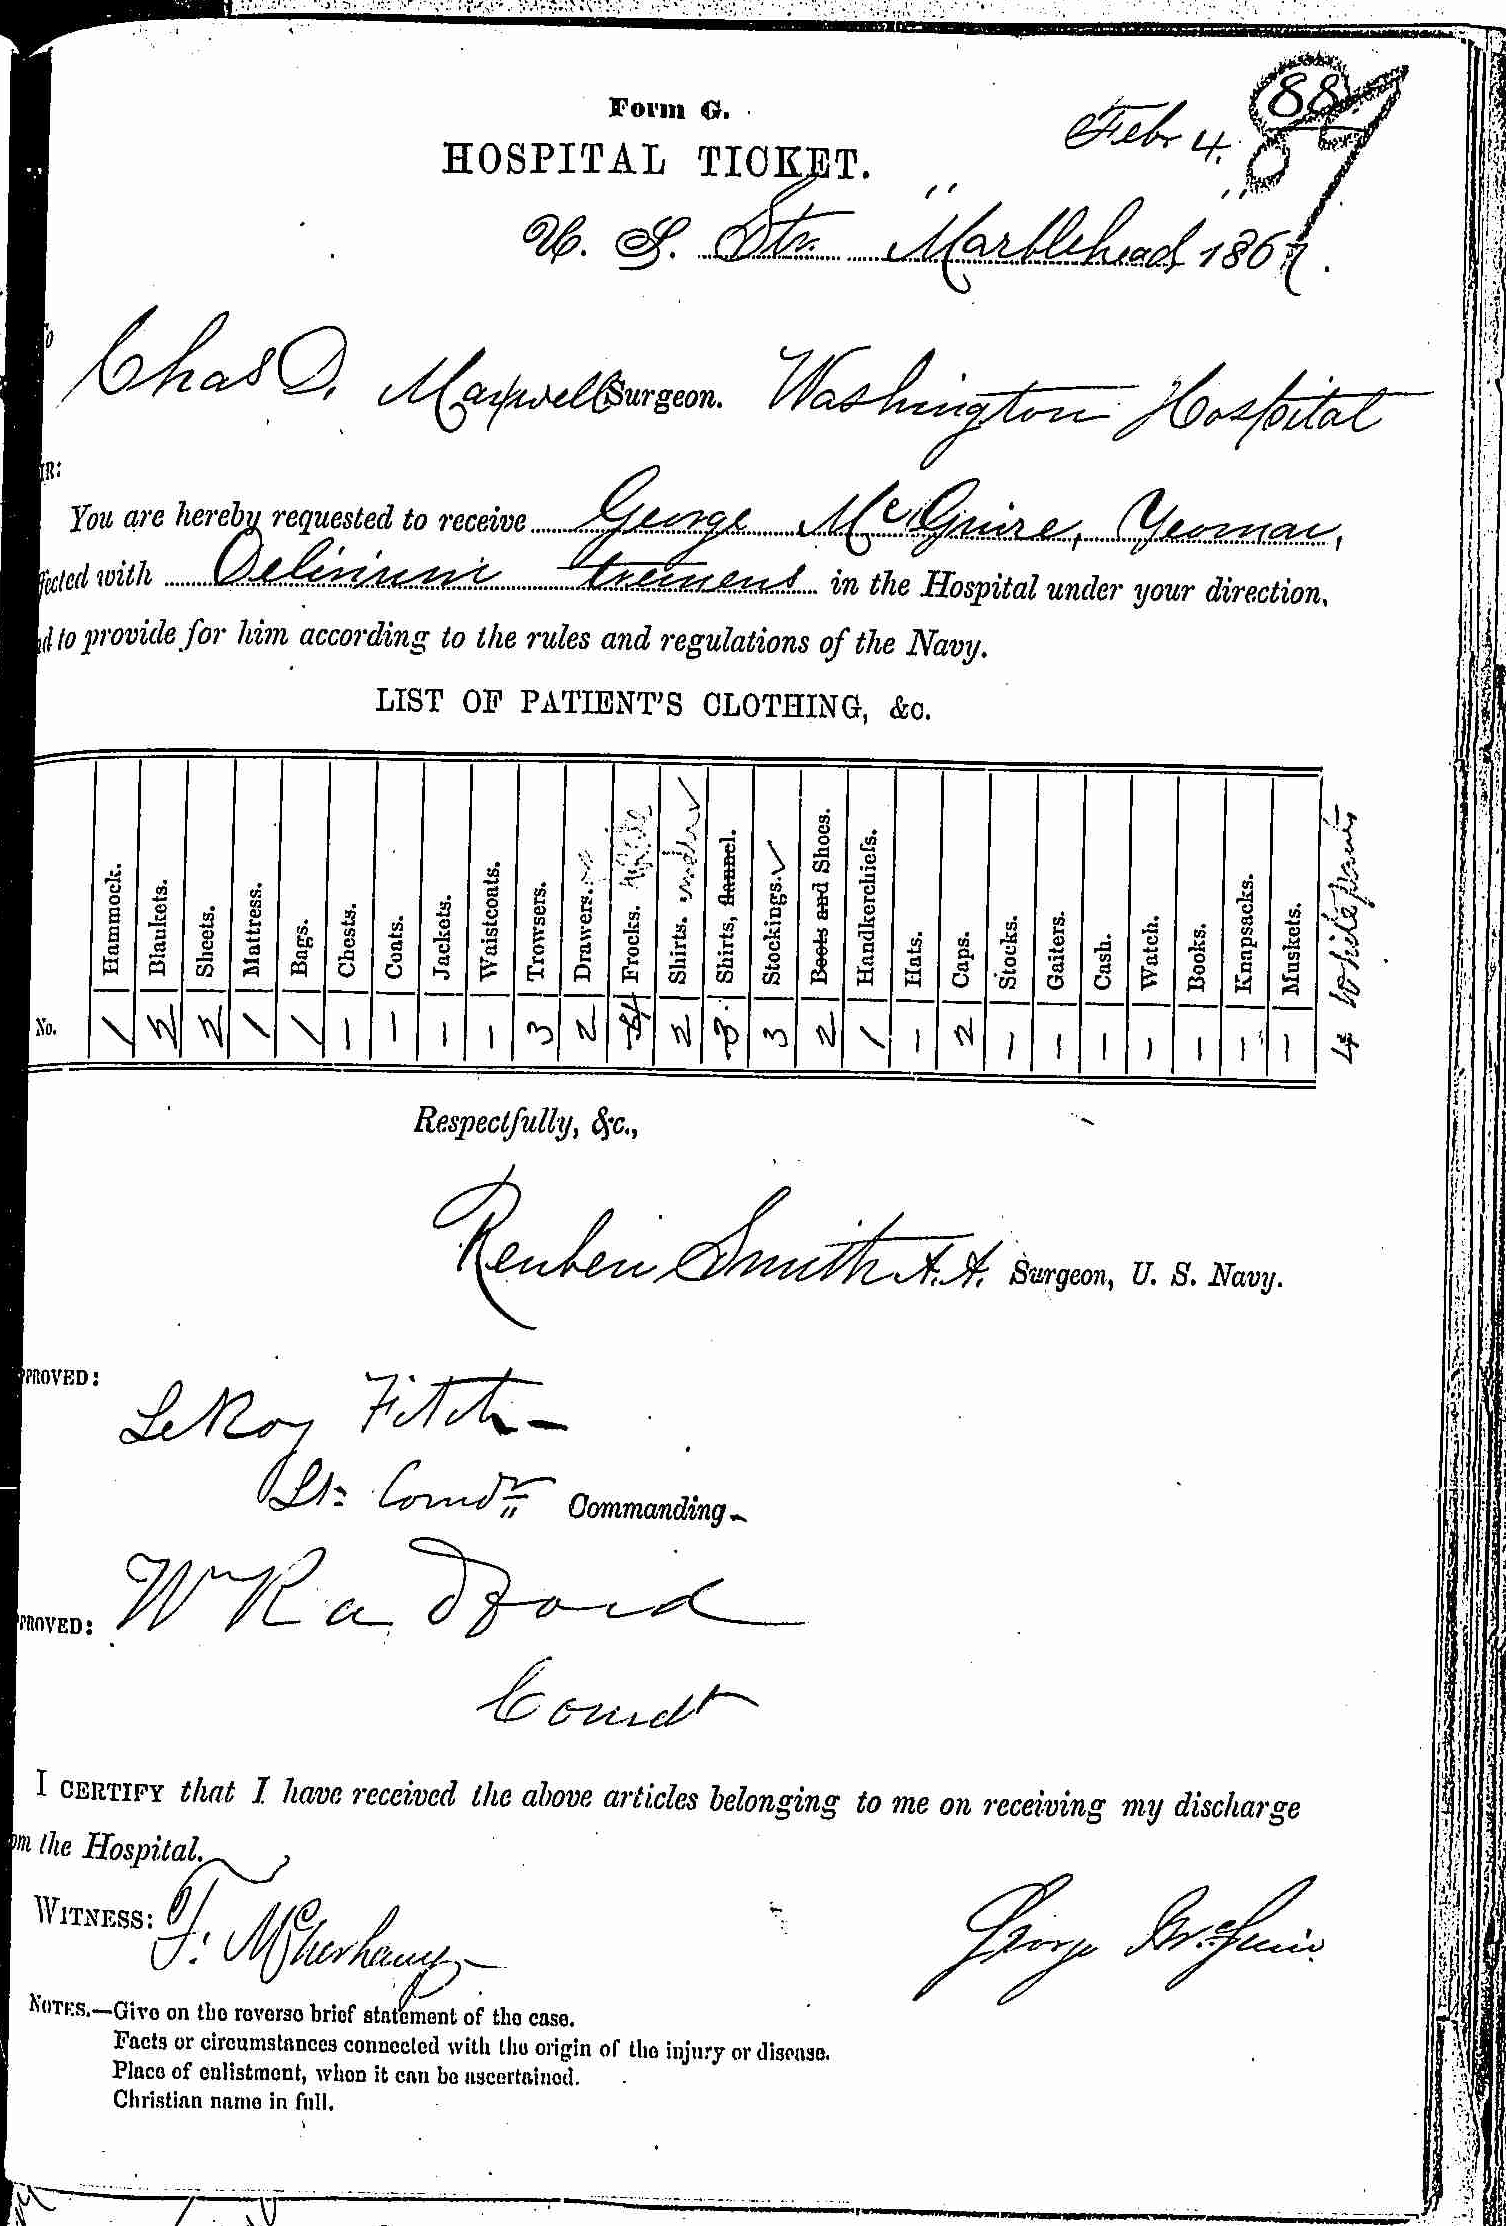 88
Form G.
Febr 4.
HOSPITAL TICKET.
U. S. Str. "Marblehead" 1867.
To
Chas D. Maxwell Surgeon. Washington Hospital
IR:
You are hereby requested to receive George McGuire, Yeoman,
fected with Delirium tremens in the Hospital under your direction,
nd to provide for him according to the rules and regulations of the Navy.
LIST OF PATIENT'S CLOTHING, &c.
Hammock. Blankets. Sheets. Mattress. Bags. Chests. Coats. Jackets. Waistcoats. Trowsers. Drawers. Frocks. white Shirts. under ✓ Shirts, flannel. Stockings. ✓ Boots and Shoes. Handkerchiefs. Hats. Caps. Stocks. Gaiters. Cash. Watch. Books. Knapsacks. Muskets. 4 White pants
No. 1 2 2 1 1 – – – – 3 2 4 2 3 3 2 1 – 2 – – – – – – –
Respectfully, &c.,
Reuben Smith A. A. Surgeon, U. S. Navy.
PPROVED:
LeRoy Fitch –
Lt. Comdr Commanding –
PPROVED: Wm Radford
Comdt
I CERTIFY that I have received the above articles belonging to me on receiving my discharge
om the Hospital.
WITNESS: F. George McGuire
NOTES.—Give on the reverse brief statement of the case.
Facts or circumstances connected with the origin of the injury or disease.
Place of enlistment, when it can be ascertained.
Christian name in full.